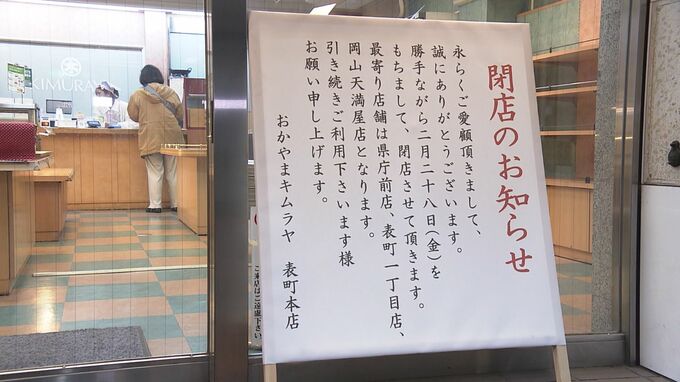 閉店のお知らせ
永らくご愛顧頂きまして、
誠にありがとうございます。
勝手ながら二月二十八日(金)を
もちまして、閉店させて頂きます。
最寄り店舗は県庁前店、表町一丁目店、
岡山天満屋店となります。
引き続きご利用下さいます様
お願い申し上げます。
おかやまキムラヤ 表町本店
KIMURAYA
ご来店はご遠慮下さい